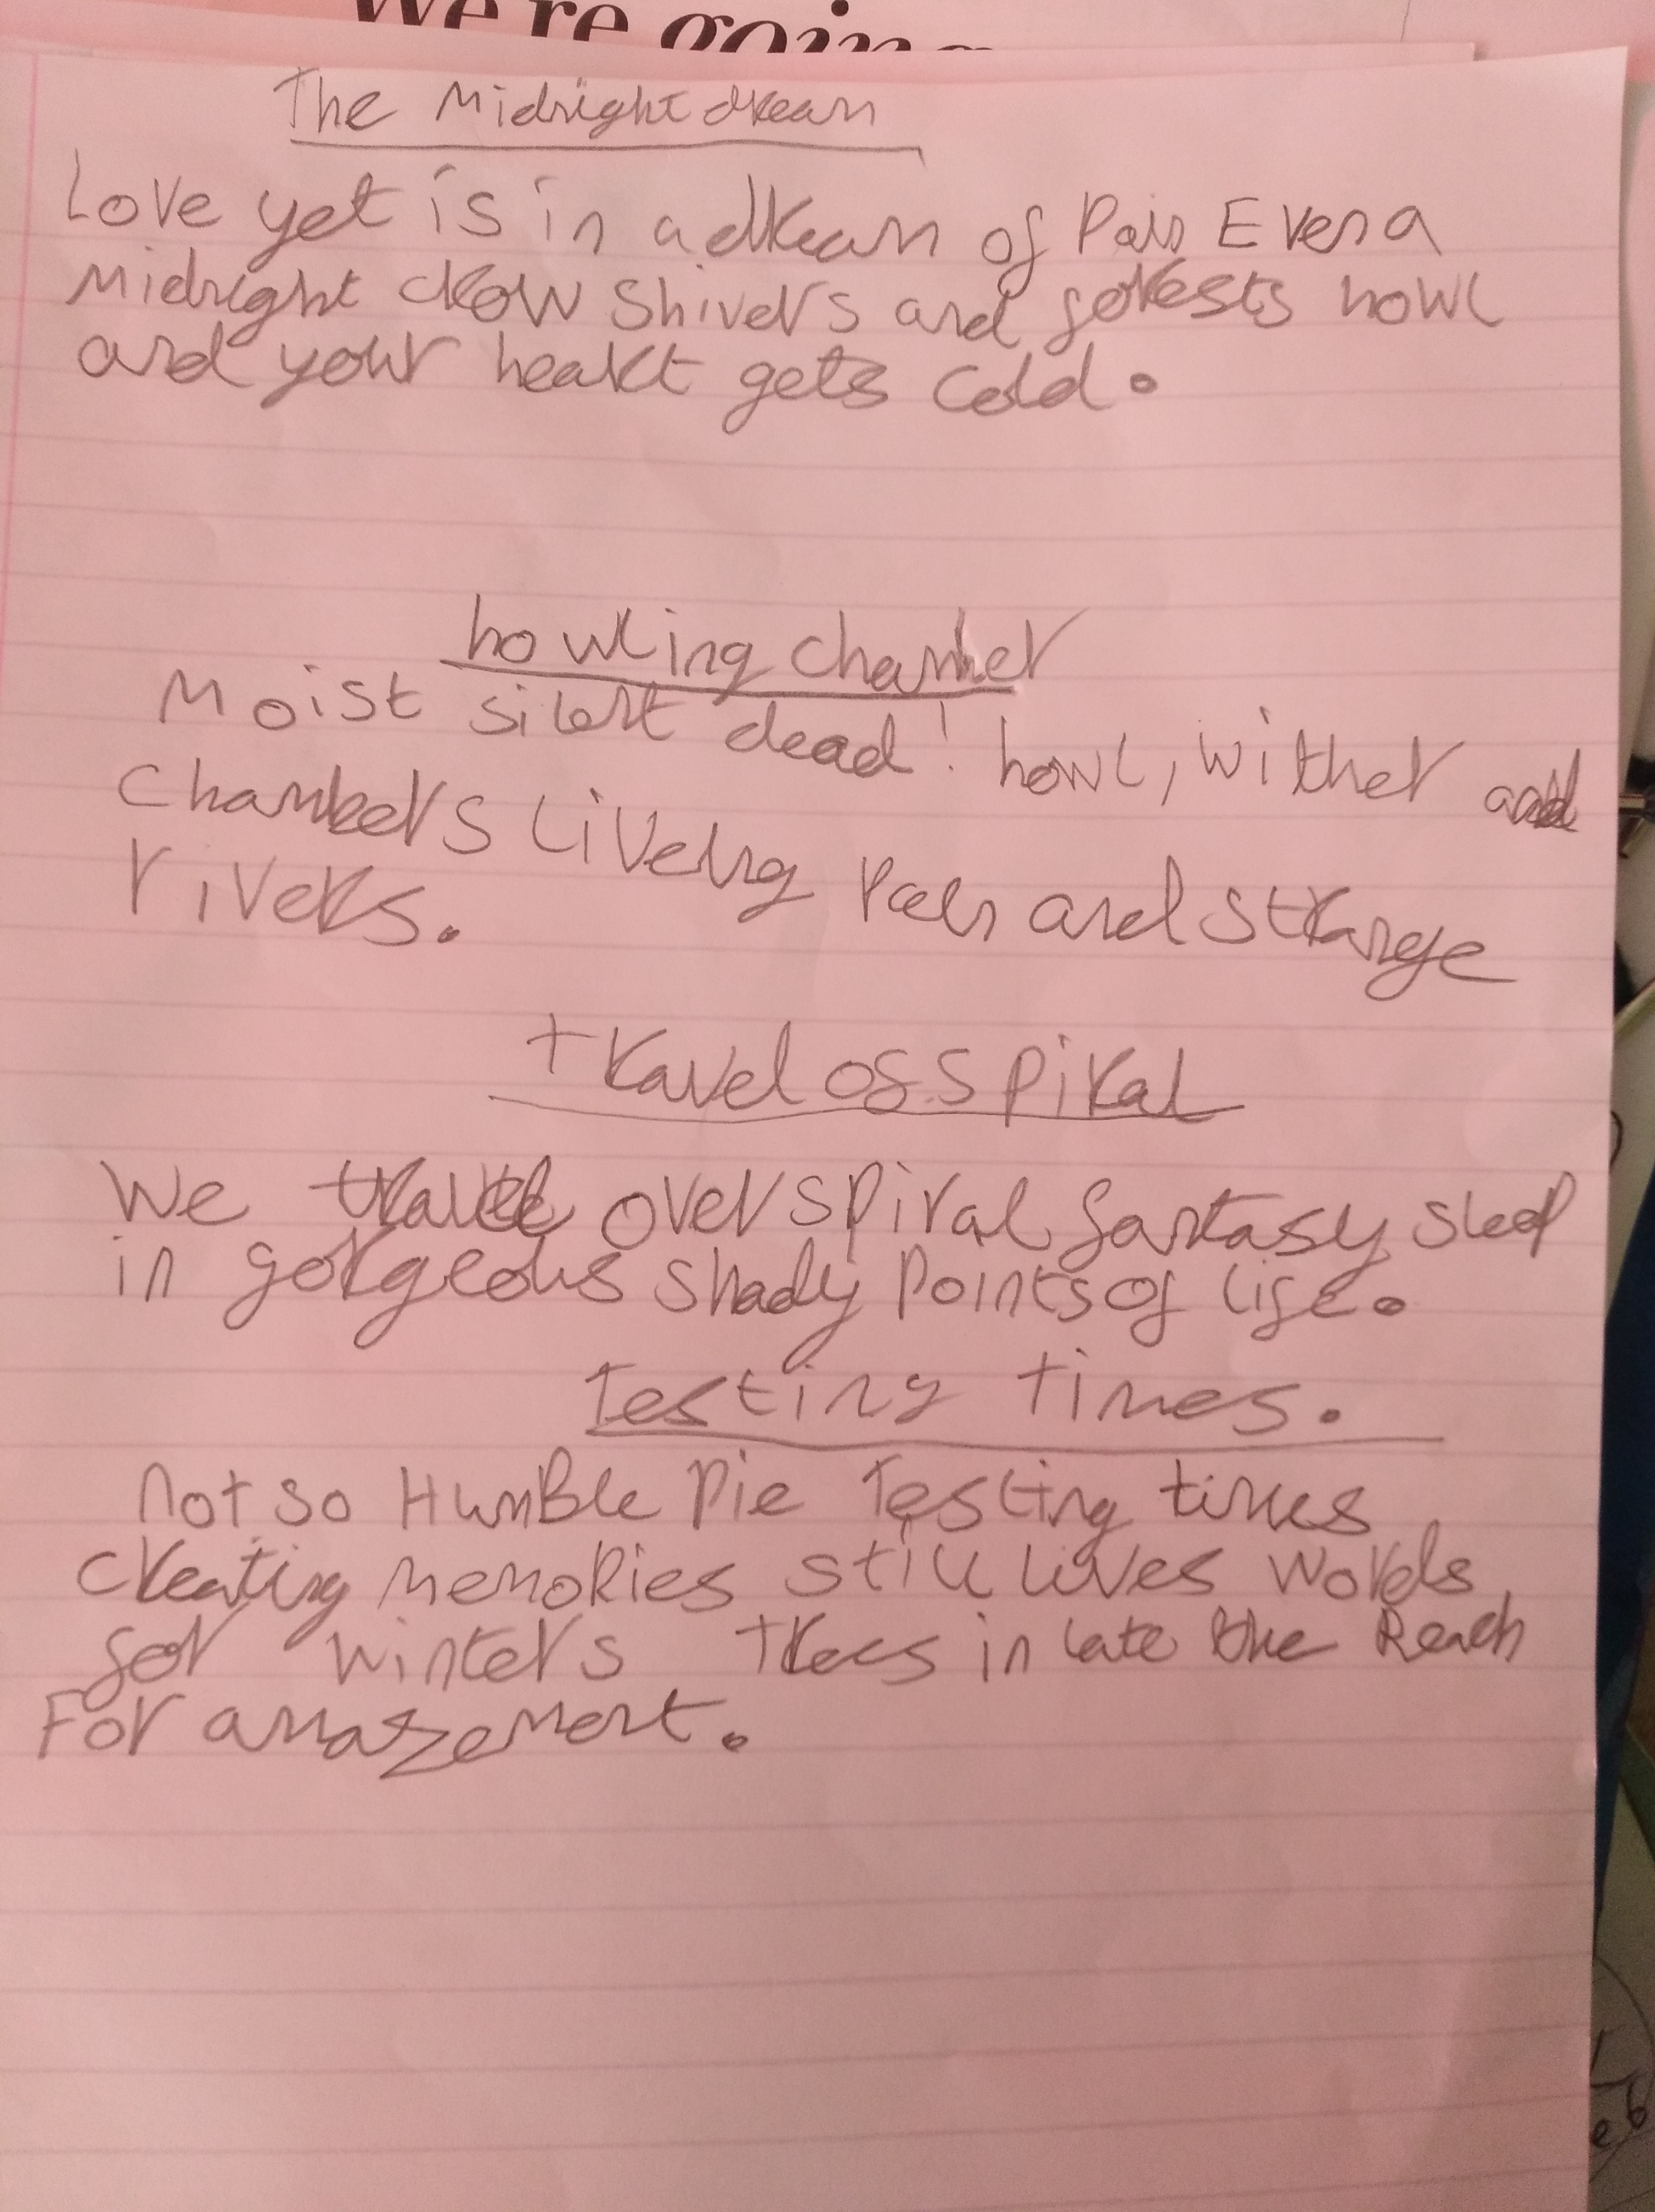 We're going
The Midnight dream
Love yet is in a dream of Pain Even a
Midnight crow shivers and forests howl
and your heart gets cold.
howling chamber
Moist silent dead! howl, wither and
Chambers Liveing Pain and strange
rivers.
travel of spiral
We travel over spiral fantasy sleep
in gorgeous shady Points of life.
Testing times.
not so HumBle Pie Testing times
creating memories still lives words
for winters trees in late the Reach
For amazement.